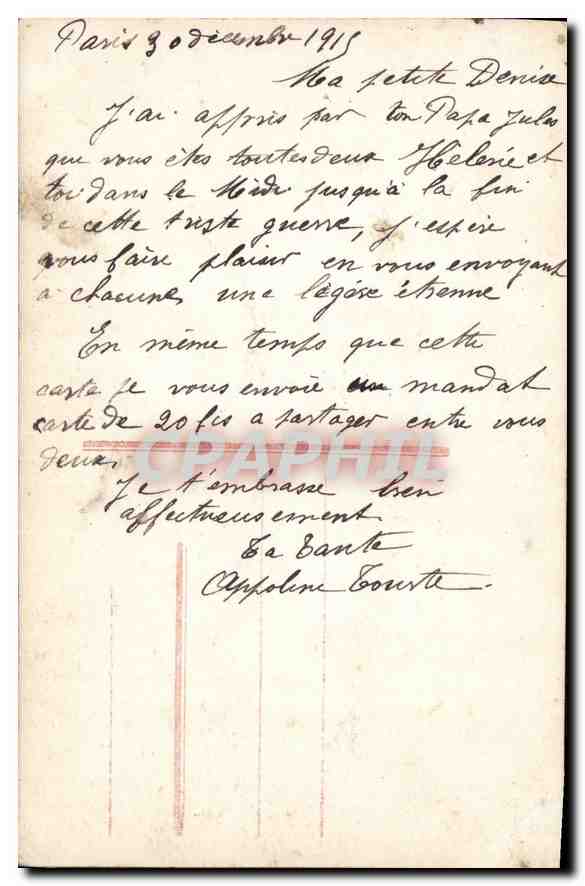 Paris 30 décembre 1915
Ma petite Denise
J'ai appris par ton Papa Jules
que vous êtes toutes deux Hélène et
toi dans le Midi jusqu'à la fin
de cette triste guerre, j'espère
vous faire plaisir en vous envoyant
à chacune, une légère étrenne
En même temps que cette
carte je vous envoie un mandat
carte de 20 frs a partager entre vous
deux,
CPAPHIL
Je t'embrasse bien
affectueusement
Ta Tante
Appoline Tourte